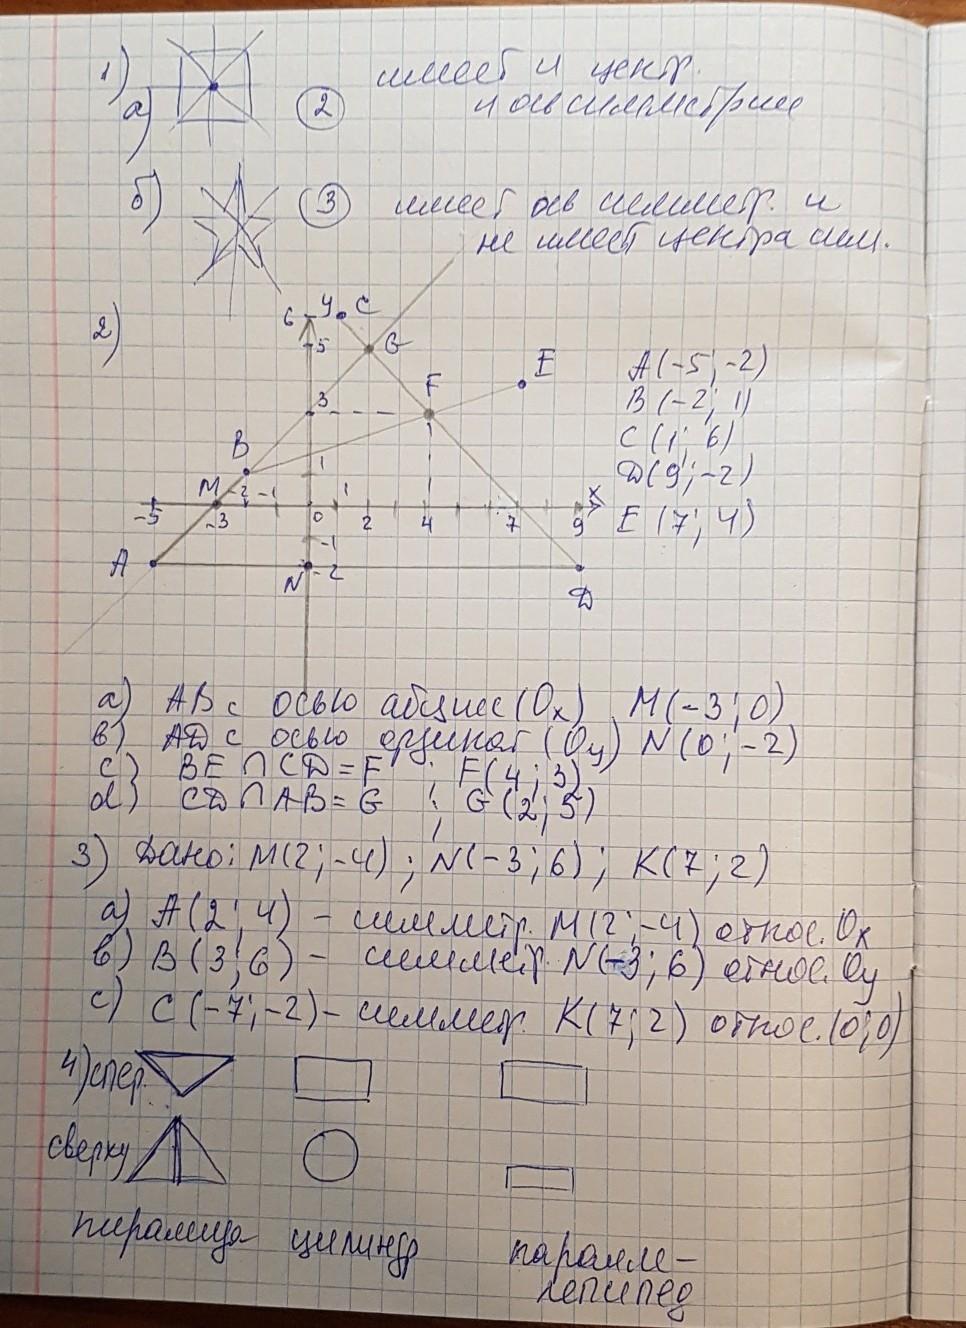 1)
а)
2
имеет и центр.
и ось симметрии
б)
3
имеет ось симметр. и
не имеет центра сим.
2)
6 y C
5 G
E
F
3
B
M -2 -1 1 1 x
-5 -3 0 2 4 7 9
-1
A N -2 D
A(-5; -2)
B(-2; 1)
C(1; 6)
D(9; -2)
E(7; 4)
a) AB с осью абсцисс (Ox) M(-3; 0)
b) AD с осью ординат (Oy) N(0; -2)
c) BE ∩ CD = F ; F(4; 3)
d) CD ∩ AB = G ; G(2; 5)
3) Дано: M(2; -4) ; N(-3; 6) ; K(7; 2)
a) A(2; 4) – симметр. M(2; -4) относ. Ox
b) B(3; 6) – симметр. N(-3; 6) относ. Oy
c) C(-7; -2) – симметр. K(7; 2) относ. (0; 0)
4) спер.
сверху
пирамида цилиндр паралле-
лепипед